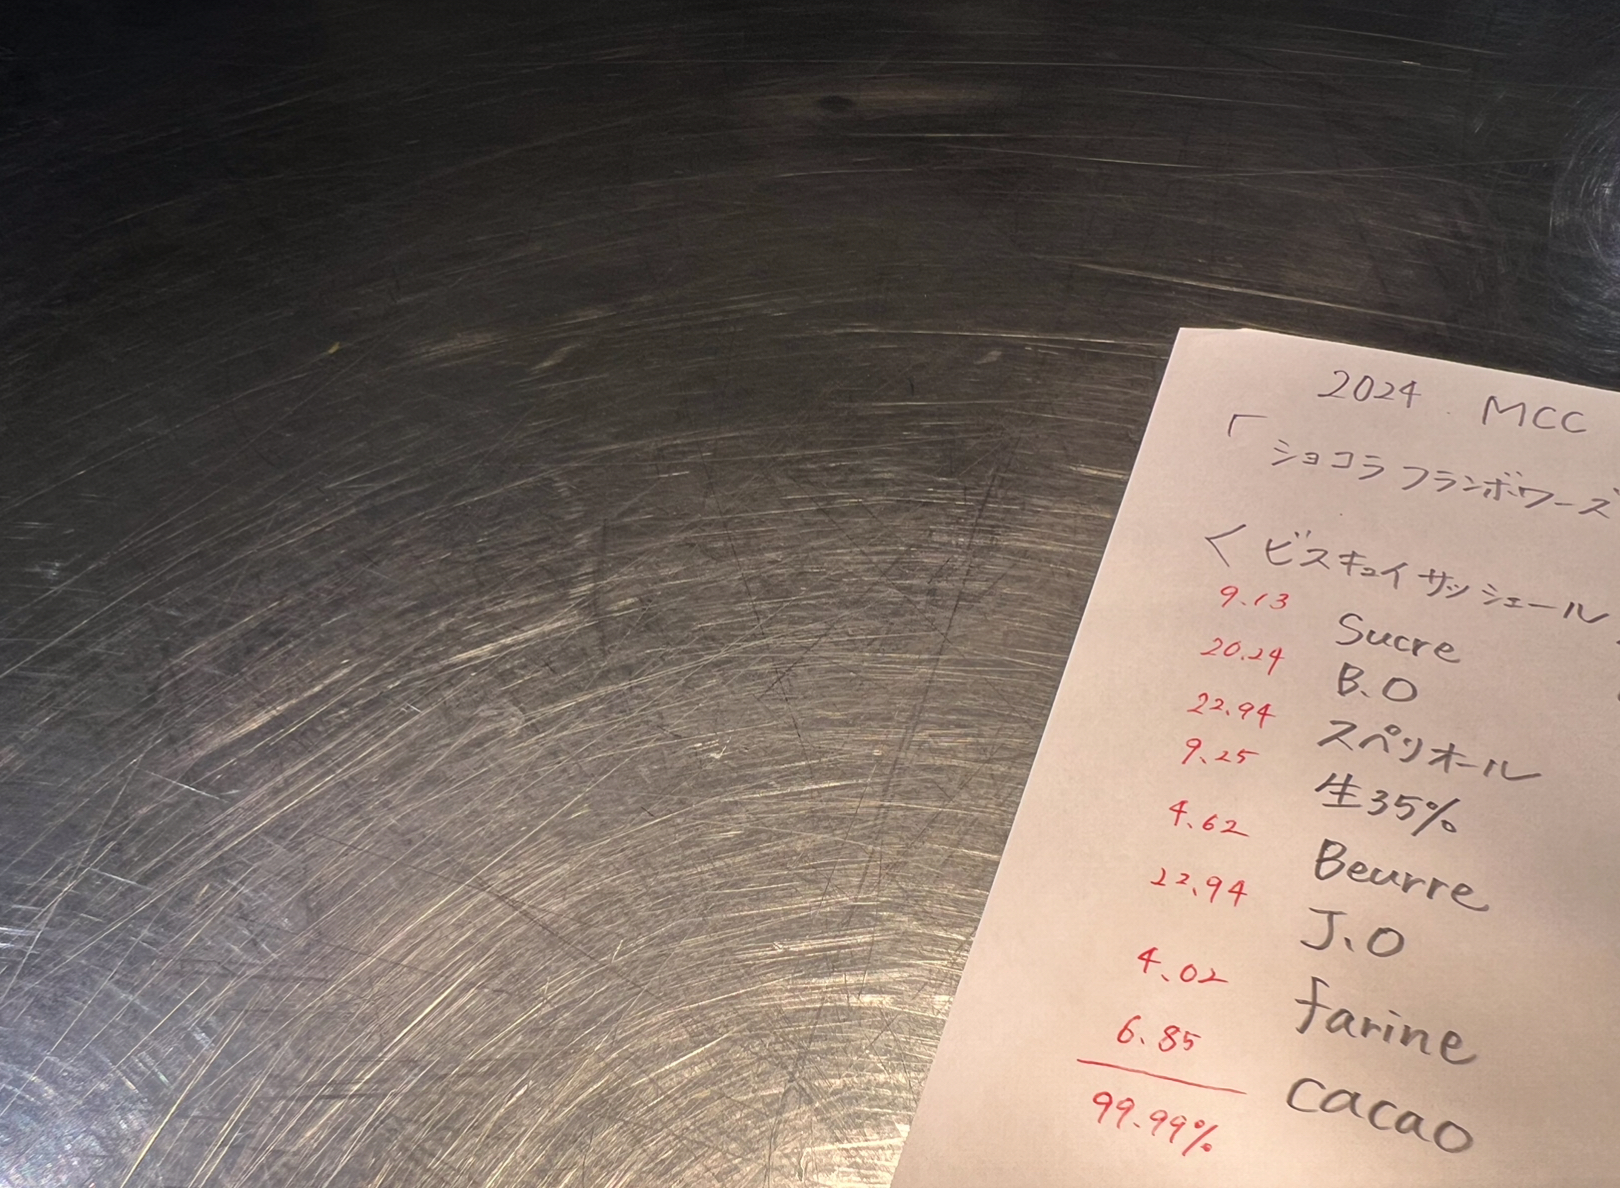 2024 MCC
「ショコラ フランボワーズ
<ビスキュイ サッシェール
9.13 Sucre
20.24 B.O
22.94 スペリオール
9.25 生35%
4.62 Beurre
22.94 J.O
4.02 farine
6.85 cacao
99.99%